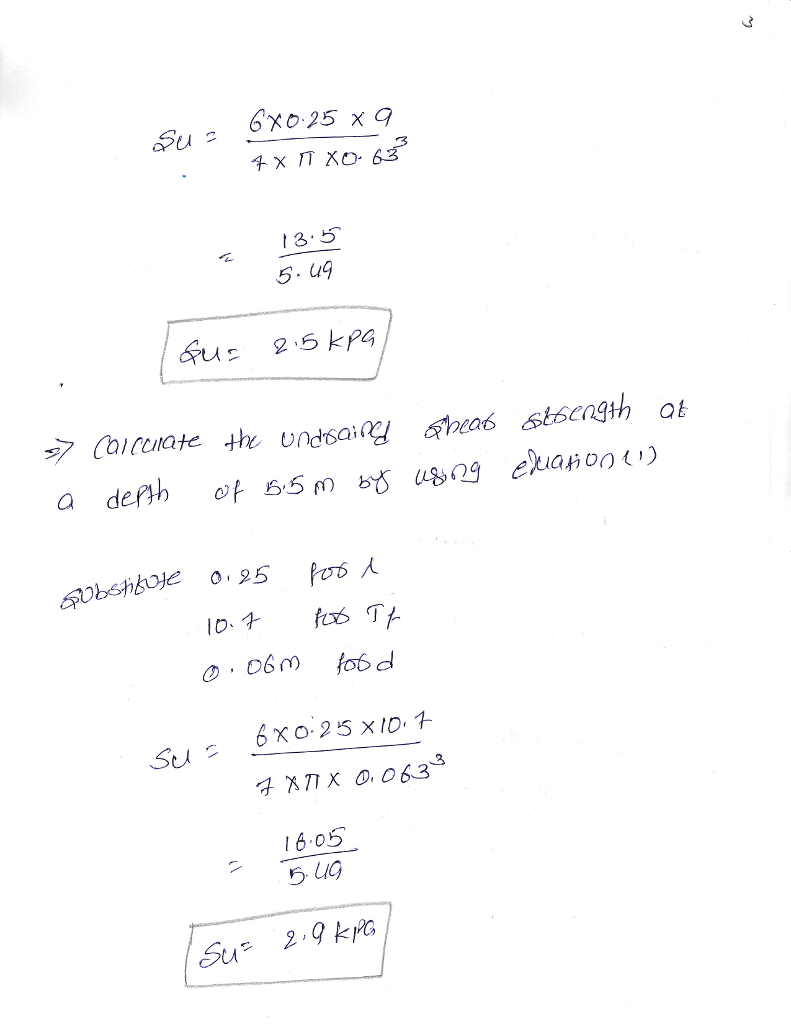 3
Su = 6x0.25 x 9
7 x π x0.63³
= 13.5
5.49
Su = 2.5 kpa
=> Calculate the undrained shear strength at
a depth of 5.5 m by using equation (1)
Substitute 0.25 for λ
10.7 for Tf
0.06m for d
Su = 6x0.25x10.7
7 x π x 0.063³
= 16.05
5.49
Su = 2.9 kpa